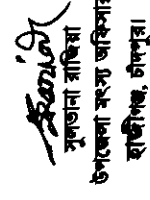 সুলতানা রাজিয়া
উপজেলা মৎস্য অফিসার
হাজীগঞ্জ, চাঁদপুর।